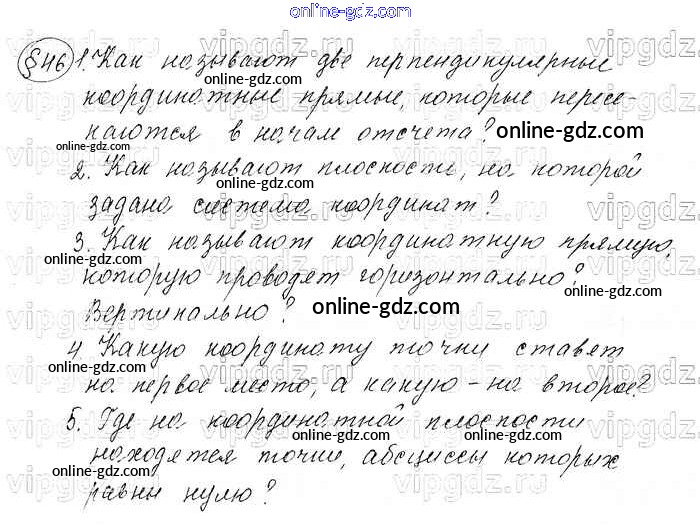 online-gdz.com
§46 1. Как называют две перпендикулярные
online-gdz.com
координатные прямые, которые пересе-
каются в начале отсчета? online-gdz.com
online-gdz.com
2. Как называют плоскость, на которой
online-gdz.com
задана система координат?
online-gdz.com
3. Как называют координатную прямую,
online-gdz.com
которую проводят горизонтально?
online-gdz.com
Вертикально? online-gdz.com
4. Какую координату точки ставят
online-gdz.com
на первое место, а какую – на второе?
online-gdz.com
5. Где на координатной плоскости
online-gdz.com
находятся точки, абсциссы которых
online-gdz.com
равны нулю?